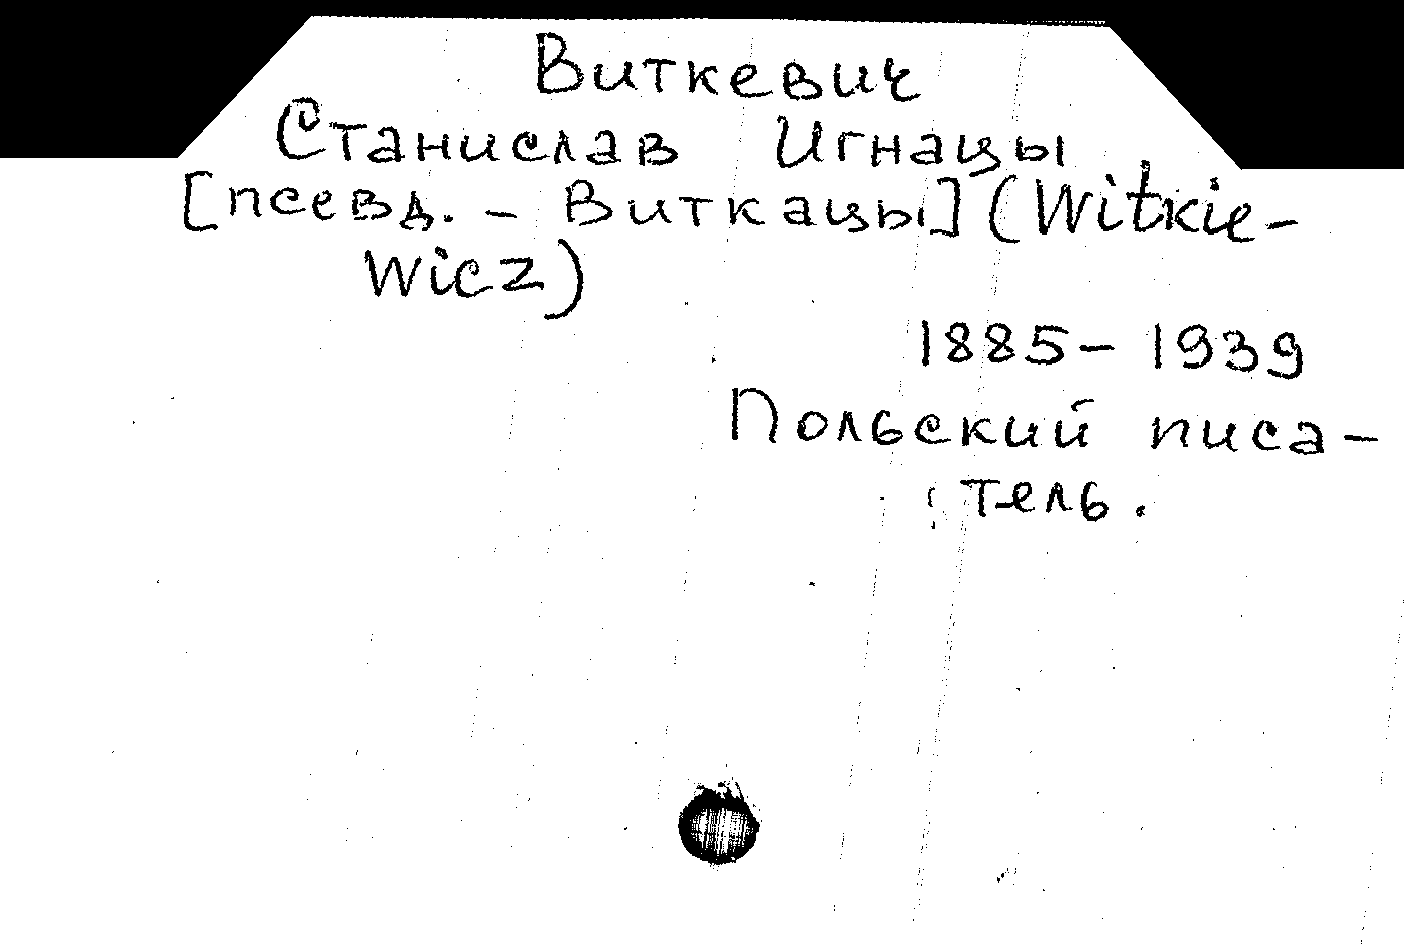 Виткевич
Станислав Игнацы
[псевд. - Виткацы] (Witkie-
wicz)
1885-1939
Польский писа-
тель.